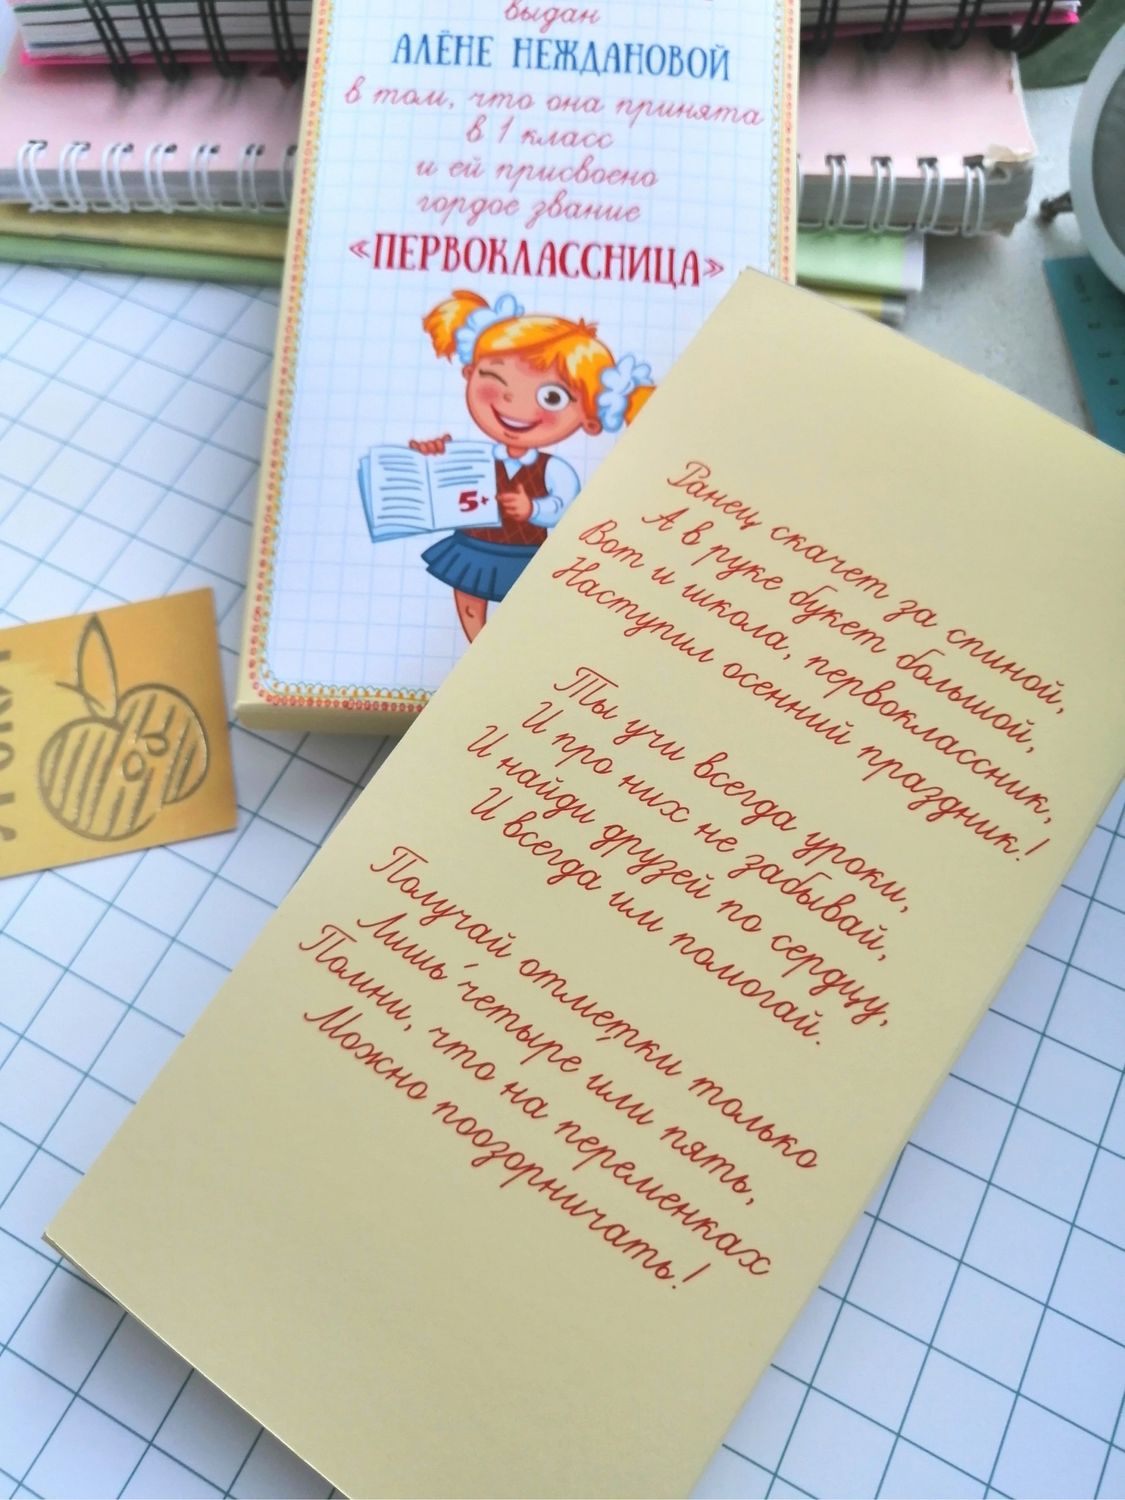 выдан
АЛЁНЕ НЕЖДАНОВОЙ
в том, что она принята
в 1 класс
и ей присвоено
гордое звание
«ПЕРВОКЛАССНИЦА»
5+
Ранец скачет за спиной,
А в руке букет большой,
Вот и школа, первоклассник,
Наступил осенний праздник!
Ты учи всегда уроки,
И про них не забывай,
И найди друзей по сердцу,
И всегда им помогай.
Получай отметки только
Лишь четыре или пять,
Помни, что на переменках
Можно поозорничать!